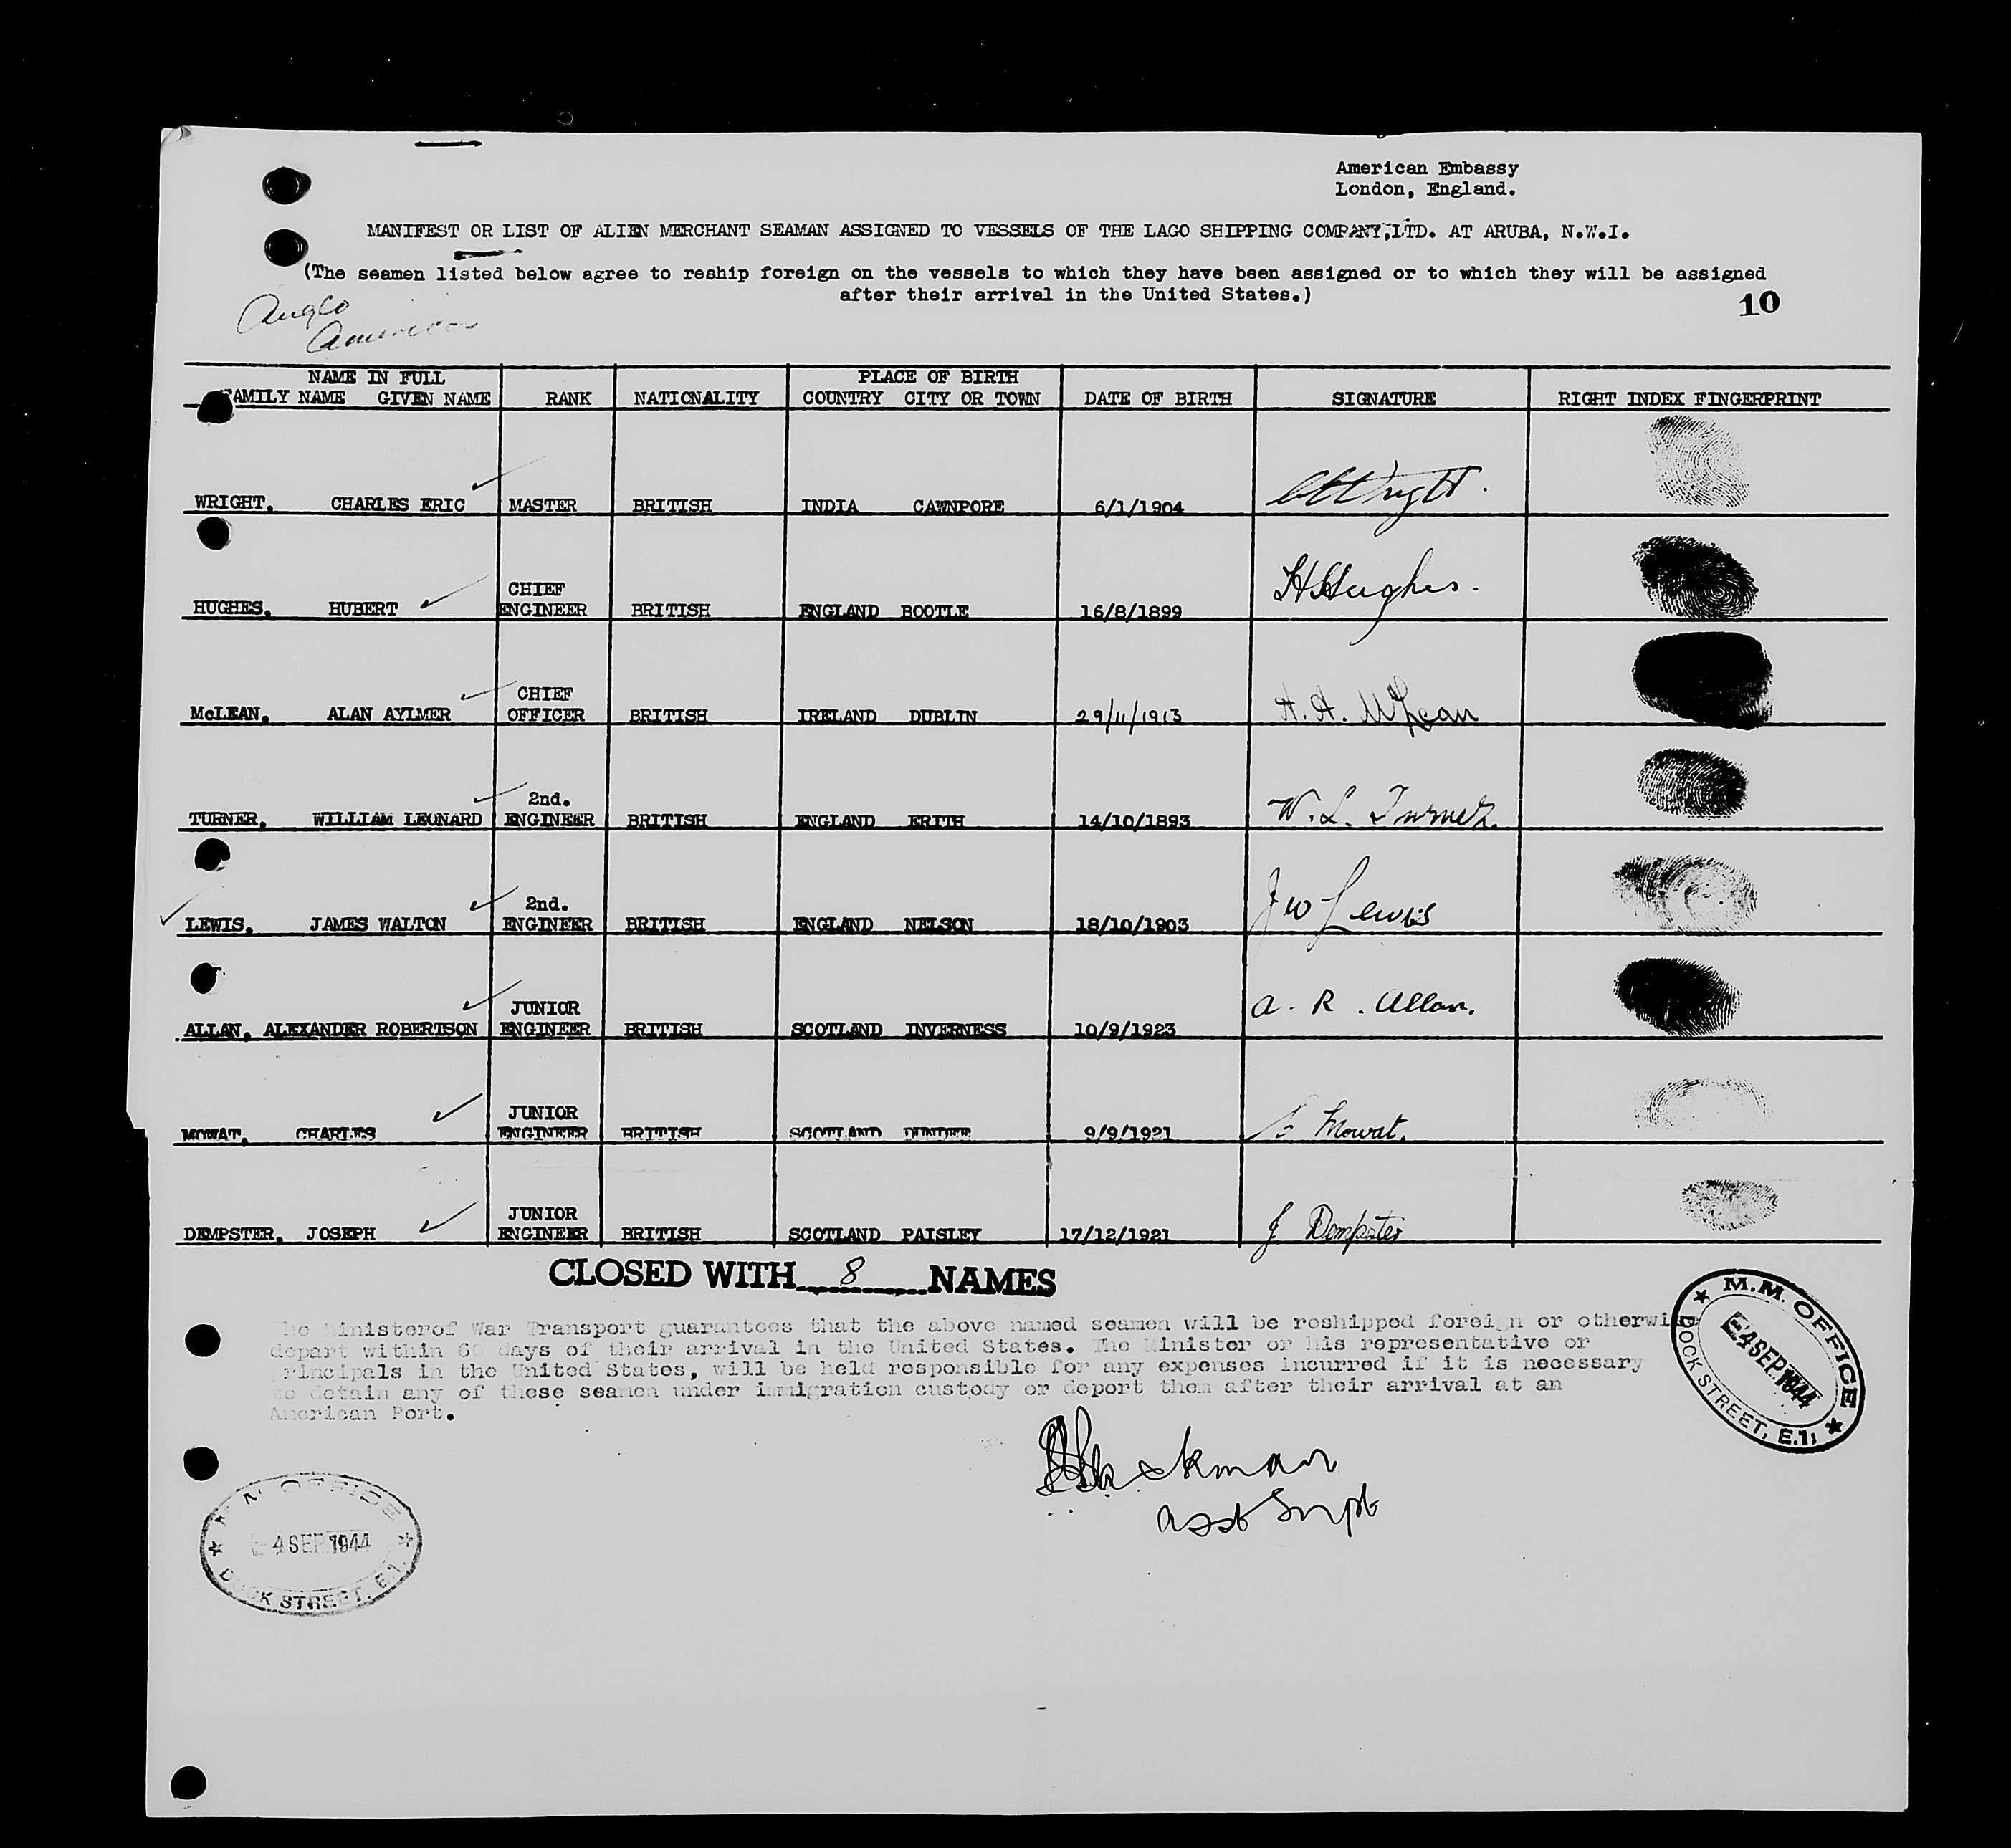 American Embassy
London, England.
MANIFEST OR LIST OF ALIEN MERCHANT SEAMAN ASSIGNED TO VESSELS OF THE LAGO SHIPPING COMPANY, LTD. AT ARUBA, N.W.I.
(The seamen listed below agree to reship foreign on the vessels to which they have been assigned or to which they will be assigned
after their arrival in the United States.)
10
Anglo
American
NAME IN FULL PLACE OF BIRTH
FAMILY NAME GIVEN NAME RANK NATIONALITY COUNTRY CITY OR TOWN DATE OF BIRTH SIGNATURE RIGHT INDEX FINGERPRINT
WRIGHT, CHARLES ERIC MASTER BRITISH INDIA CAWNPORE 6/1/1904 C E Wright.
CHIEF
HUGHES, HUBERT ENGINEER BRITISH ENGLAND BOOTLE 16/8/1899 H Hughes.
CHIEF
McLEAN, ALAN AYLMER OFFICER BRITISH IRELAND DUBLIN 29/11/1913 A. A. McLean
2nd.
TURNER, WILLIAM LEONARD ENGINEER BRITISH ENGLAND ERITH 14/10/1893 W. L. Turner.
2nd.
LEWIS, JAMES WALTON ENGINEER BRITISH ENGLAND NELSON 18/10/1903 J W Lewis
JUNIOR
ALLAN, ALEXANDER ROBERTSON ENGINEER BRITISH SCOTLAND INVERNESS 10/9/1923 A. R. Allan.
JUNIOR
MOWAT, CHARLES ENGINEER BRITISH SCOTLAND DUNDEE 9/9/1921 C Mowat.
JUNIOR
DEMPSTER, JOSEPH ENGINEER BRITISH SCOTLAND PAISLEY 17/12/1921 J Dempster
CLOSED WITH 8 NAMES
The Ministerof War Transport guarantees that the above named seamen will be reshipped foreign or otherwise
depart within 60 days of their arrival in the United States. The Minister or his representative or
principals in the United States, will be held responsible for any expenses incurred if it is necessary
to detain any of these seamen under immigration custody or deport them after their arrival at an
American Port.
M.M. OFFICE
4 SEP 1944
DOCK STREET, E.1.
Asst Supt
M.M. OFFICE
4 SEP 1944
DOCK STREET, E.1.